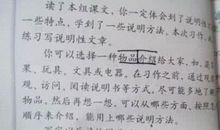 读了本组课文，你一定体会到了说明性
一些特点，学到了一些说明方法。本次习作，
练习写说明性文章。
你可以选择一种物品介绍给大家，如，
果、玩具、文具或电器。在习作之前，通过观
观、访问、阅读说明书等方式，尽可能多地了
物品，然后再想一想，可以从哪些方面、按照
顺序来介绍，能用上哪些说明方法。